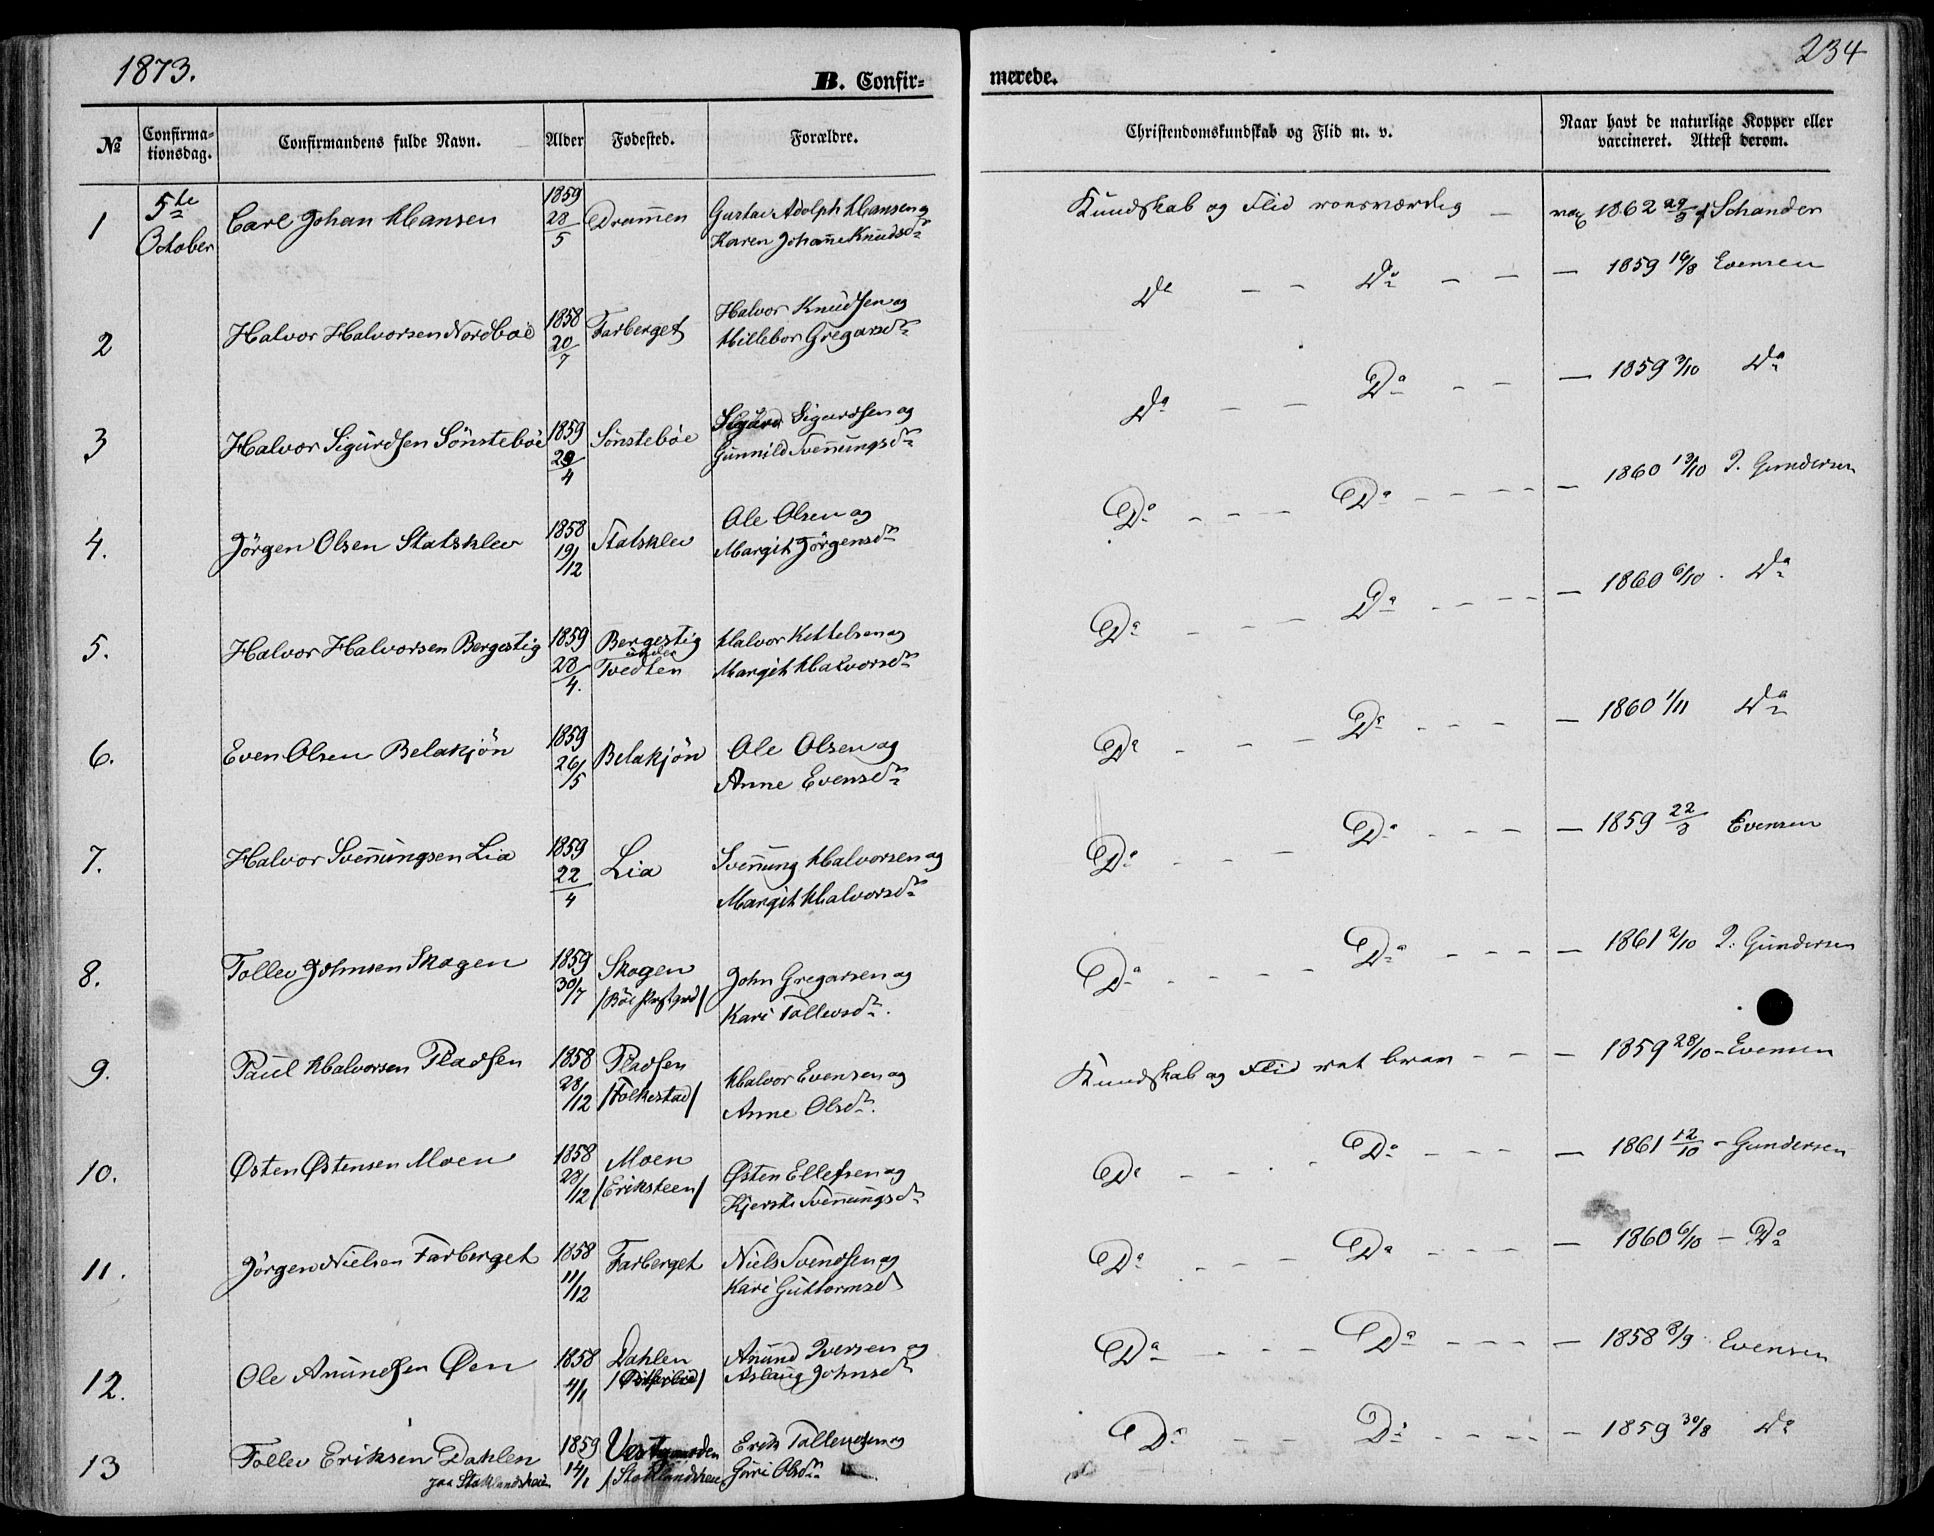 1873.
B. Confir-
merede.
234
No
Confirma-
tionsdag.
Confirmandens fulde Navn.
Alder
Fødested.
Forældre.
Christendomskundskab og Flid m. v.
Naar havt de naturlige Kopper eller
vaccineret. Attest derom.
1 5te October Carl Johan Hansen 1859 28/5 Drammen Gustav Adolph Hansen og
Karen Johanne Knudsdr
Kundskab og Flid roesværdig — vac 1862 29/3 Schander
2 Halvor Halvorsen Nordbøe 1858 20/7 Farberget Halvor Knudsen og
Hillebor Gregarsdr
Do — — Do — — — 1859 16/8 Evensen
3 Halvor Sigurdsen Sönstebøe 1859 29/4 Sönstebøe Sigurd Sigurdsen og
Gunnild Svennungsdr
Do — — Do — — — 1859 3/10 Do
4. Jörgen Olsen Statsklev 1858 19/12 Statsklev Ole Olsen og
Margit Jörgensdr
Do — — — Do — — — — 1860 13/10 J. Gundersen
5. Halvor Halvorsen Bergestig 1859 28/4. Bergestig
under
Tvedten Halvor Kittelsen og
Margit Halvorsdr
Do — — — Do — — — — 1860 6/10 . Do
6. Even Olsen Belakjön 1859 26/5 Belakjön Ole Olsen og
Anne Evensdr
Do — — — Do — — — — 1860 1/11 Do
7. Halvor Svennungsen Lia 1859 22/4 Lia Svennung Halvorsen og
Margit Halvorsdr
Do — — — Do — — — — 1859 22/3 Evensen
8. Tollev Johnsen Skogen 1859 30/7 Skogen
/Böe Prestgrd/ John Gregarsen og
Kari Tollevsdr.
Do — — — Do — — — — 1861 2/10 J. Gundersen
9. Paul Halvorsen Pladsen 1858 28/12 Pladsen
/Folkestad/ Halvor Evensen og
Anne Olsdr.
Kundskab og Flid ret brav — — — 1859 28/10 - Evensen
10. Østen Østensen Moen 1858 28/12 Moen
/Eriksteen/ Østen Ellefsen og
Kjersti Svennungsdr
Do — — — Do — — — — 1861 12/10 - Gundersen
11. Jörgen Nielsen Farberget 1858 11/12 Farberget Niels Svendsen og
Kari Guttormsd
Do — — — Do — — — — 1860 6/10 — Do
12. Ole Anundsen Øen 1858 4/1 Dahlen Anund Iversen og
Aslaug Johnsdr
Do — — — Do — — — — 1858 8/9 Evensen
13 Tollev Eriksen Dahlen
paa Stoklandskeie 1859 14/1 Vestgaarden
/Stoklandskeie Erik Tollevsen og
Guri Olsdr
Do — — Do — — — — 1859 30/8 Do